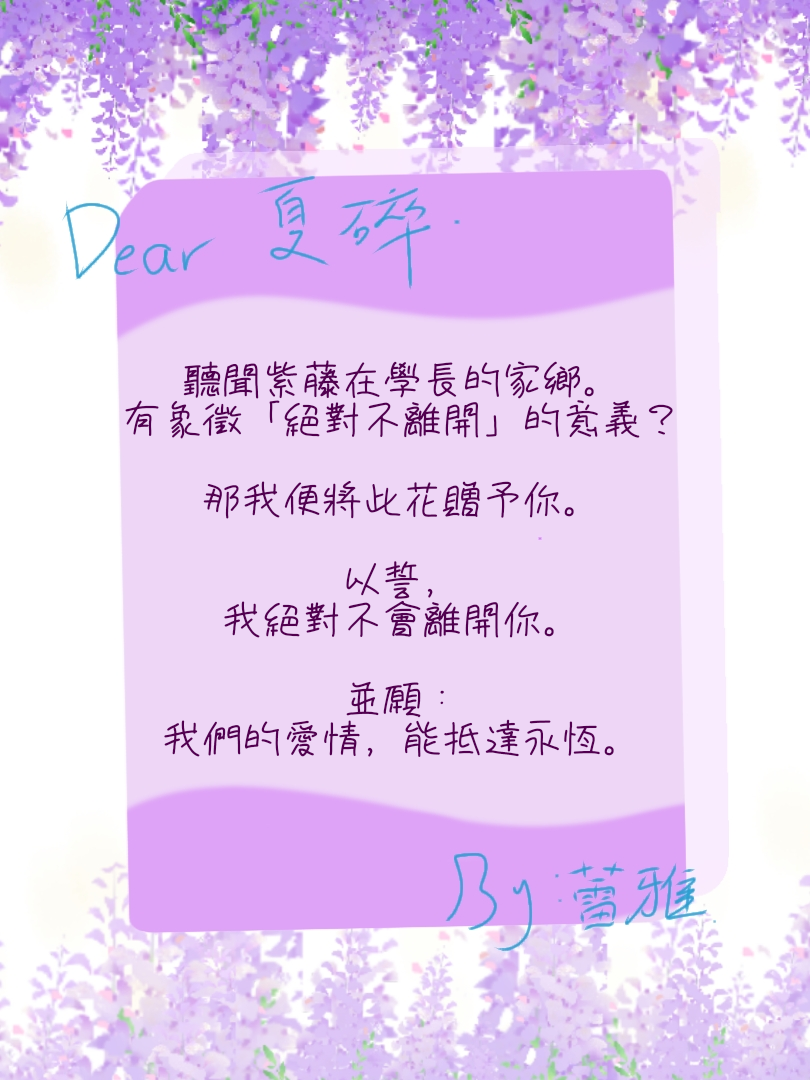 Dear 夏碎.
聽聞紫藤在學長的家鄉。
有象徵「絕對不離開」的意義？
那我便將此花贈予你。
以誓，
我絕對不會離開你。
並願：
我們的愛情，能抵達永恆。
By：蕾雅